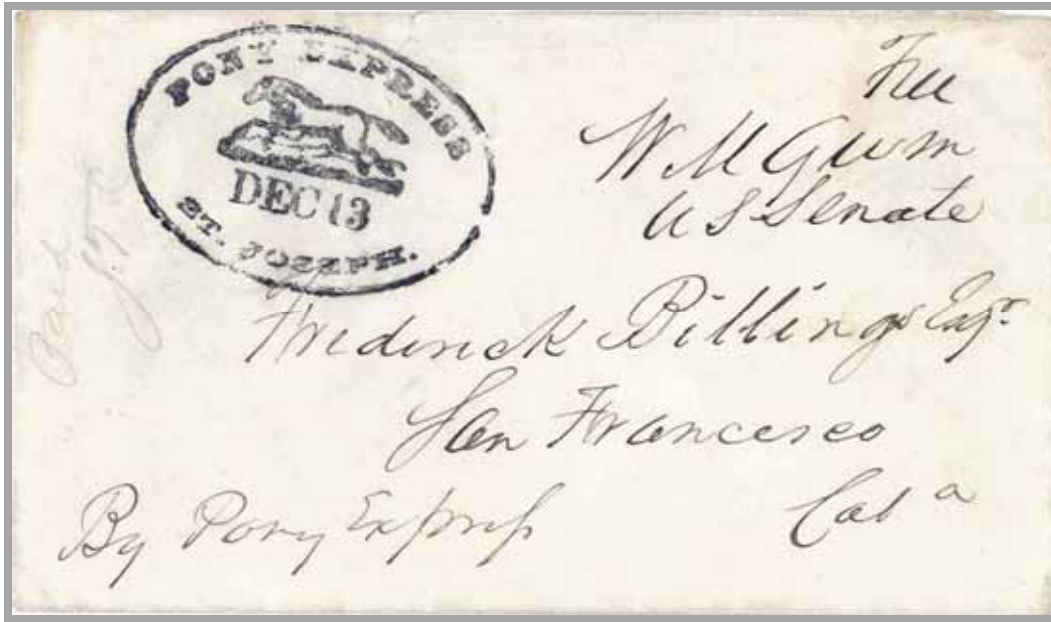 PONY EXPRESS
DEC 13
ST. JOSEPH.
Free
W M Gwin
US Senate
Paid
Frederick Billings Esqr.
San Francisco
Cala
By Pony Express